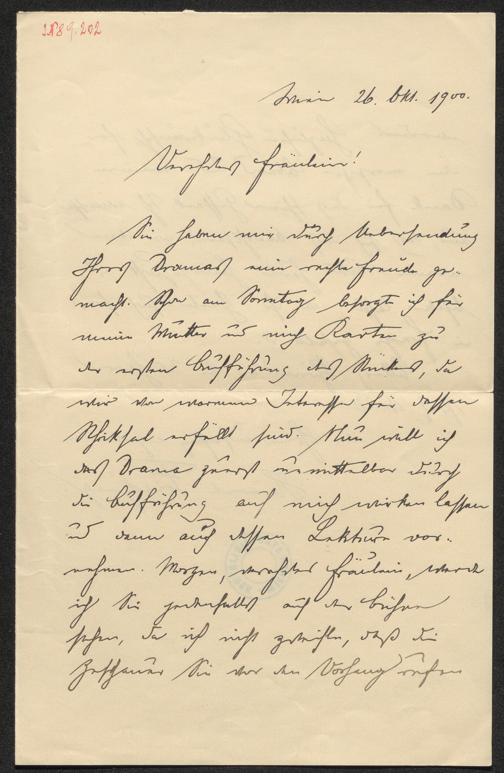 JN 89.202
Wien 26. Okt. 1900.
Verehrtes Fräulein!
Sie haben mir durch Uebersendung
Ihres Dramas eine rechte Freude ge-
macht. Schon am Sonntag besorgte ich für
meine Mutter und mich Karten zu
der ersten Aufführung des Stückes, da
wir von warmem Interesse für dessen
Schiksal erfüllt sind. Nun will ich
das Drama zuerst unmittelbar durch
die Aufführung auf mich wirken lassen
und dann auch dessen Lektüre vor-
nehmen. Morgen, verehrtes Fräulein, werde
ich Sie jedenfalls auf der Bühne
sehen, da ich nicht zweifle, daß die
Zuschauer Sie vor den Vorhang rufen